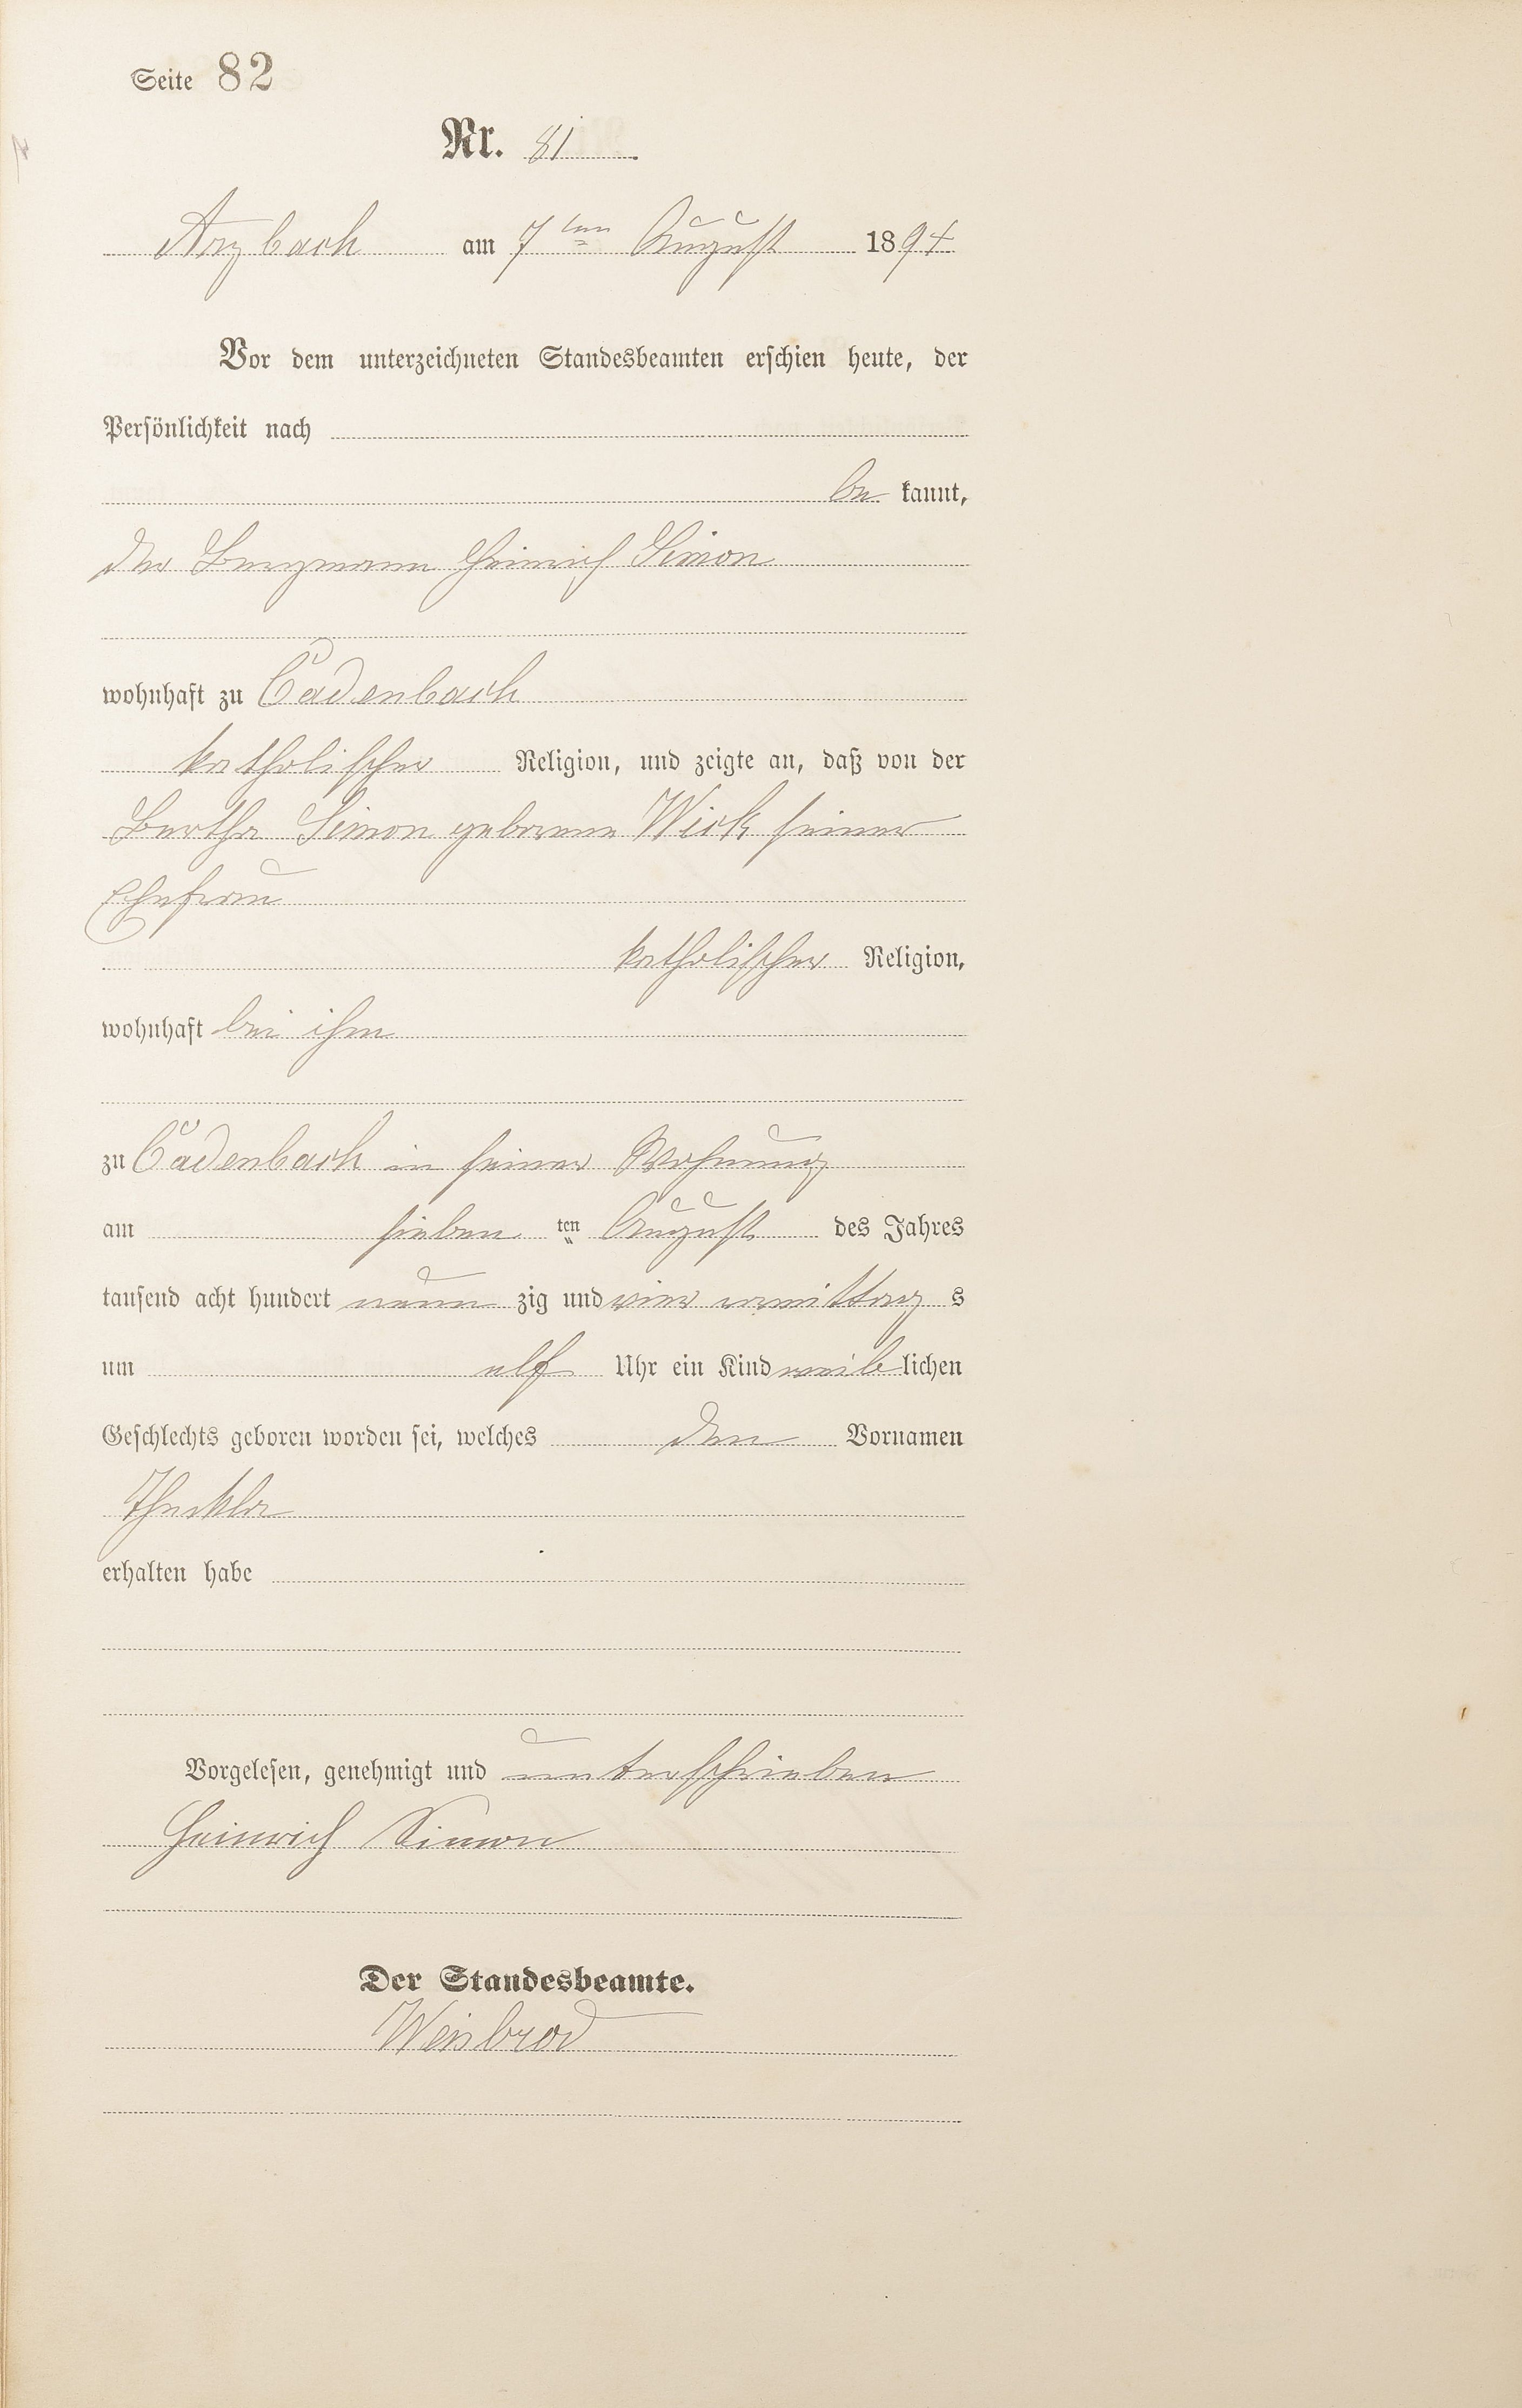 Seite 82
Nr. 81
Arzbach am 7ten August 1894
Vor dem unterzeichneten Standesbeamten erschien heute, der
Persönlichkeit nach
be kannt,
der Bergmann Heinrich Simon
wohnhaft zu Cadenbach
katholischer Religion, und zeigte an, daß von der
Bertha Simon geborene Wick seiner
Ehefrau
katholischer Religion,
wohnhaft bei ihm
zu Cadenbach in seiner Wohnung
am sieben ten August des Jahres
tausend acht hundert neun zig und vier vormittag s
um elf Uhr ein Kind weib lichen
Geschlechts geboren worden sei, welches den Vornamen
Theckla
erhalten habe
Vorgelesen, genehmigt und unterschrieben
Heinrich Simon
Der Standesbeamte.
Weisbrod